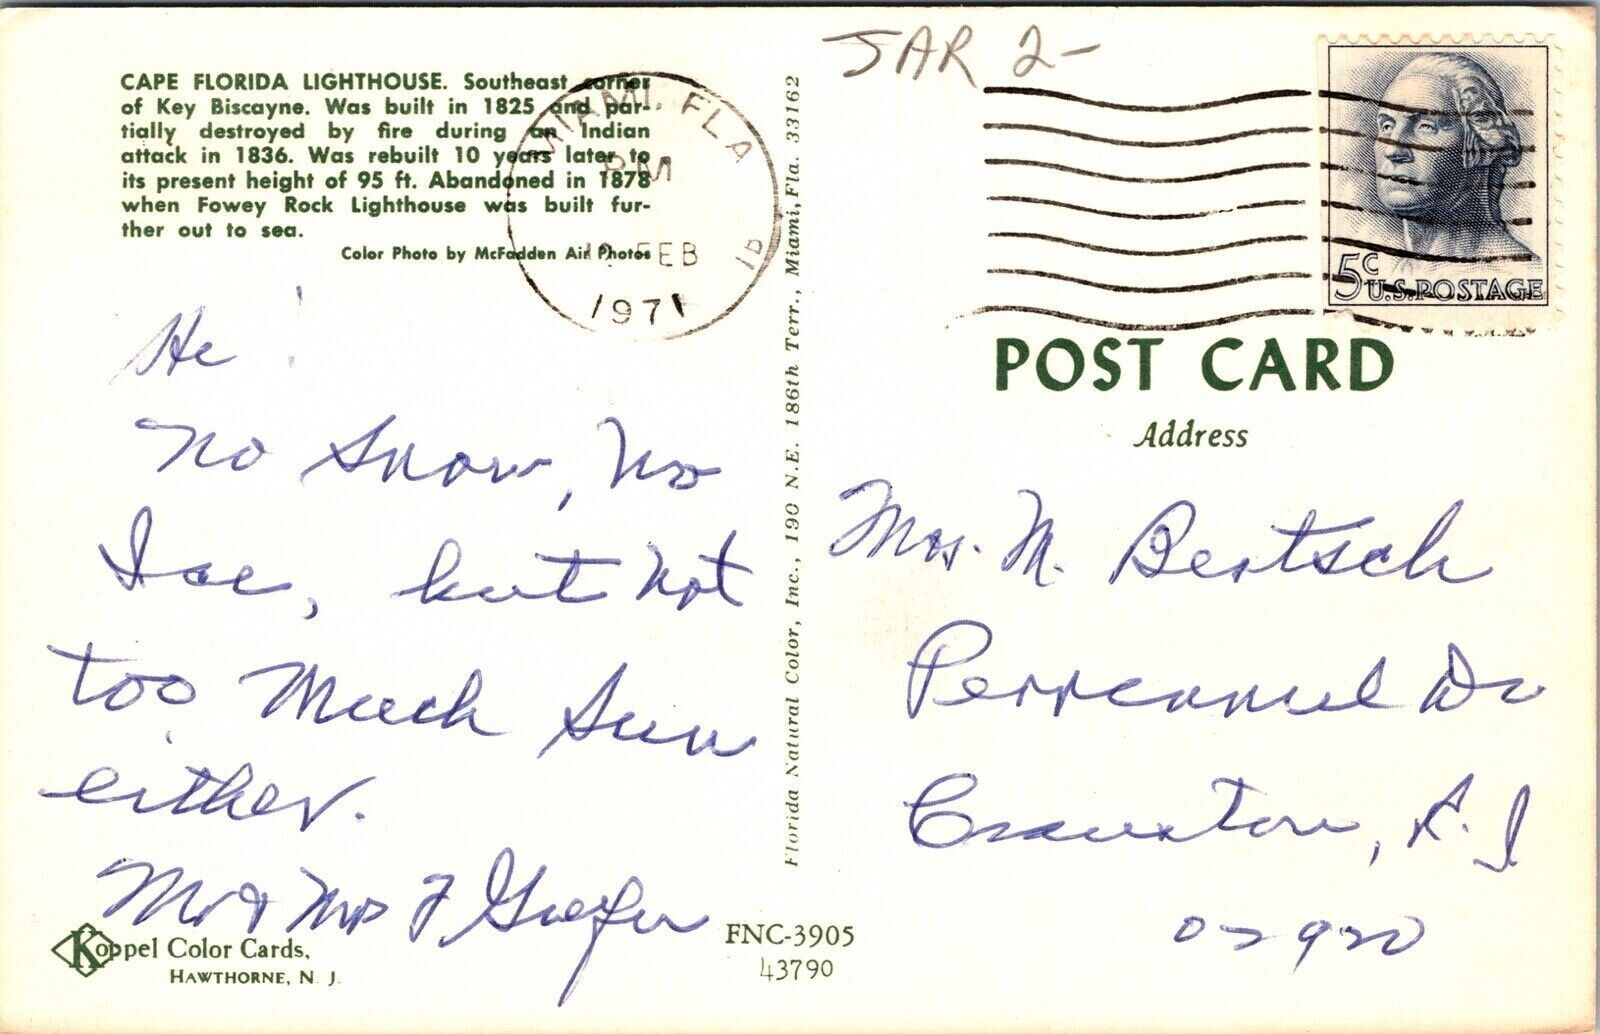 JAR 2-
CAPE FLORIDA LIGHTHOUSE. Southeast corner
of Key Biscayne. Was built in 1825 and par-
tially destroyed by fire during an Indian
attack in 1836. Was rebuilt 10 years later to
its present height of 95 ft. Abandoned in 1878
when Fowey Rock Lighthouse was built fur-
ther out to sea.
Color Photo by McFadden Air Photos
MIAMI, FLA
PM
FEB
1971
Hi!
No Snow, No
Ice, but not
too Much Sun
either.
Mr & Mrs F
Koppel Color Cards,
HAWTHORNE, N. J.
FNC-3905
43790
Florida Natural Color, Inc., 190 N.E. 186th Terr., Miami, Fla. 33162
5c
U.S. POSTAGE
POST CARD
Address
Mrs. M. Bertsch
Cranston, R.I
02920